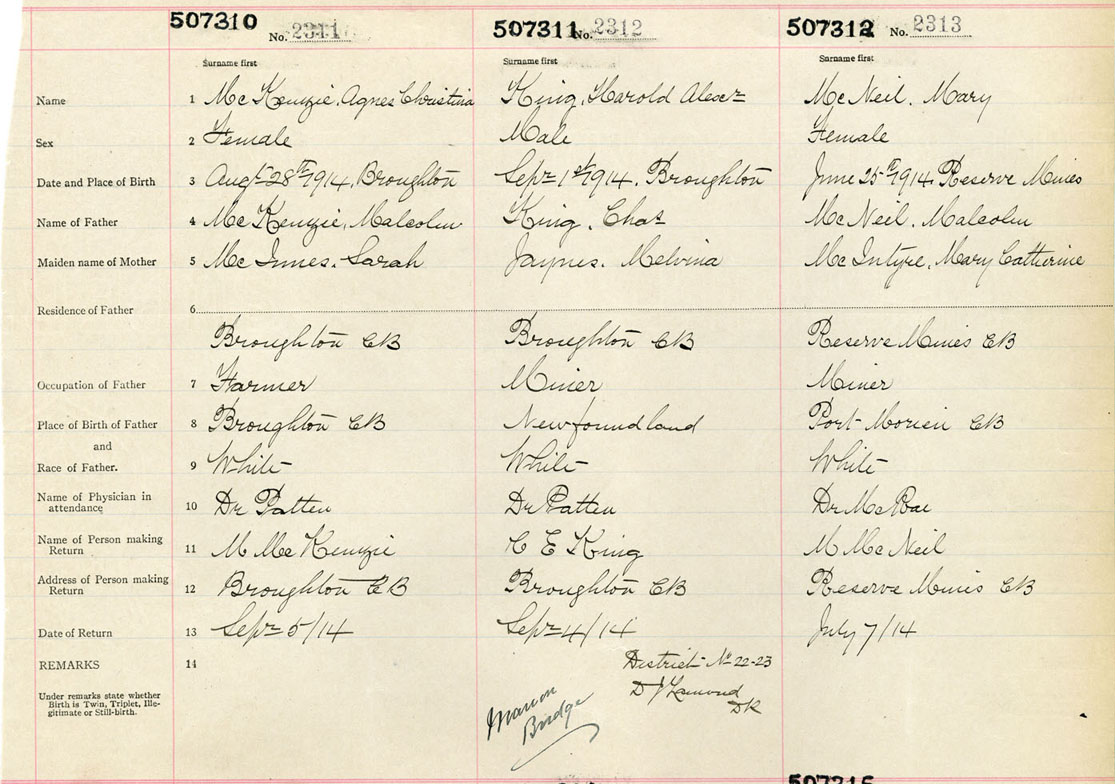 507310 No. 2311 507311 No. 2312 507312 No. 2313
Surname first Surname first Surname first
Name 1 Mc Kenzie, Agnes Christina King, Harold Alexr Mc Neil. Mary
Sex 2 Female Male Female
Date and Place of Birth 3 Augt 28th 1914, Broughton Sepr 1st 1914, Broughton June 25th 1914. Reserve Mines
Name of Father 4 Mc Kenzie, Malcolm King, Chas Mc Neil, Malcolm
Maiden name of Mother 5 Mc Innes. Sarah Jaynes. Melvina Mc Intyre, Mary Catherine
Residence of Father 6
Broughton CB Broughton CB Reserve Mines CB
Occupation of Father 7 Farmer Miner Miner
Place of Birth of Father 8 Broughton CB Newfoundland Port Morien CB
and
Race of Father. 9 White White White
Name of Physician in
attendance 10 Dr Patten Dr Patten Dr McRae
Name of Person making
Return 11 M McKenzie C E King M McNeil
Address of Person making
Return 12 Broughton CB Broughton CB Reserve Mines CB
Date of Return 13 Sepr 5/14 Sepr 4/14 July 7/14
REMARKS 14 District No 22-23
Under remarks state whether
Birth is Twin, Triplet, Ille-
gitimate or Still-birth.
D J Lamond
DR
Marion
Bridge